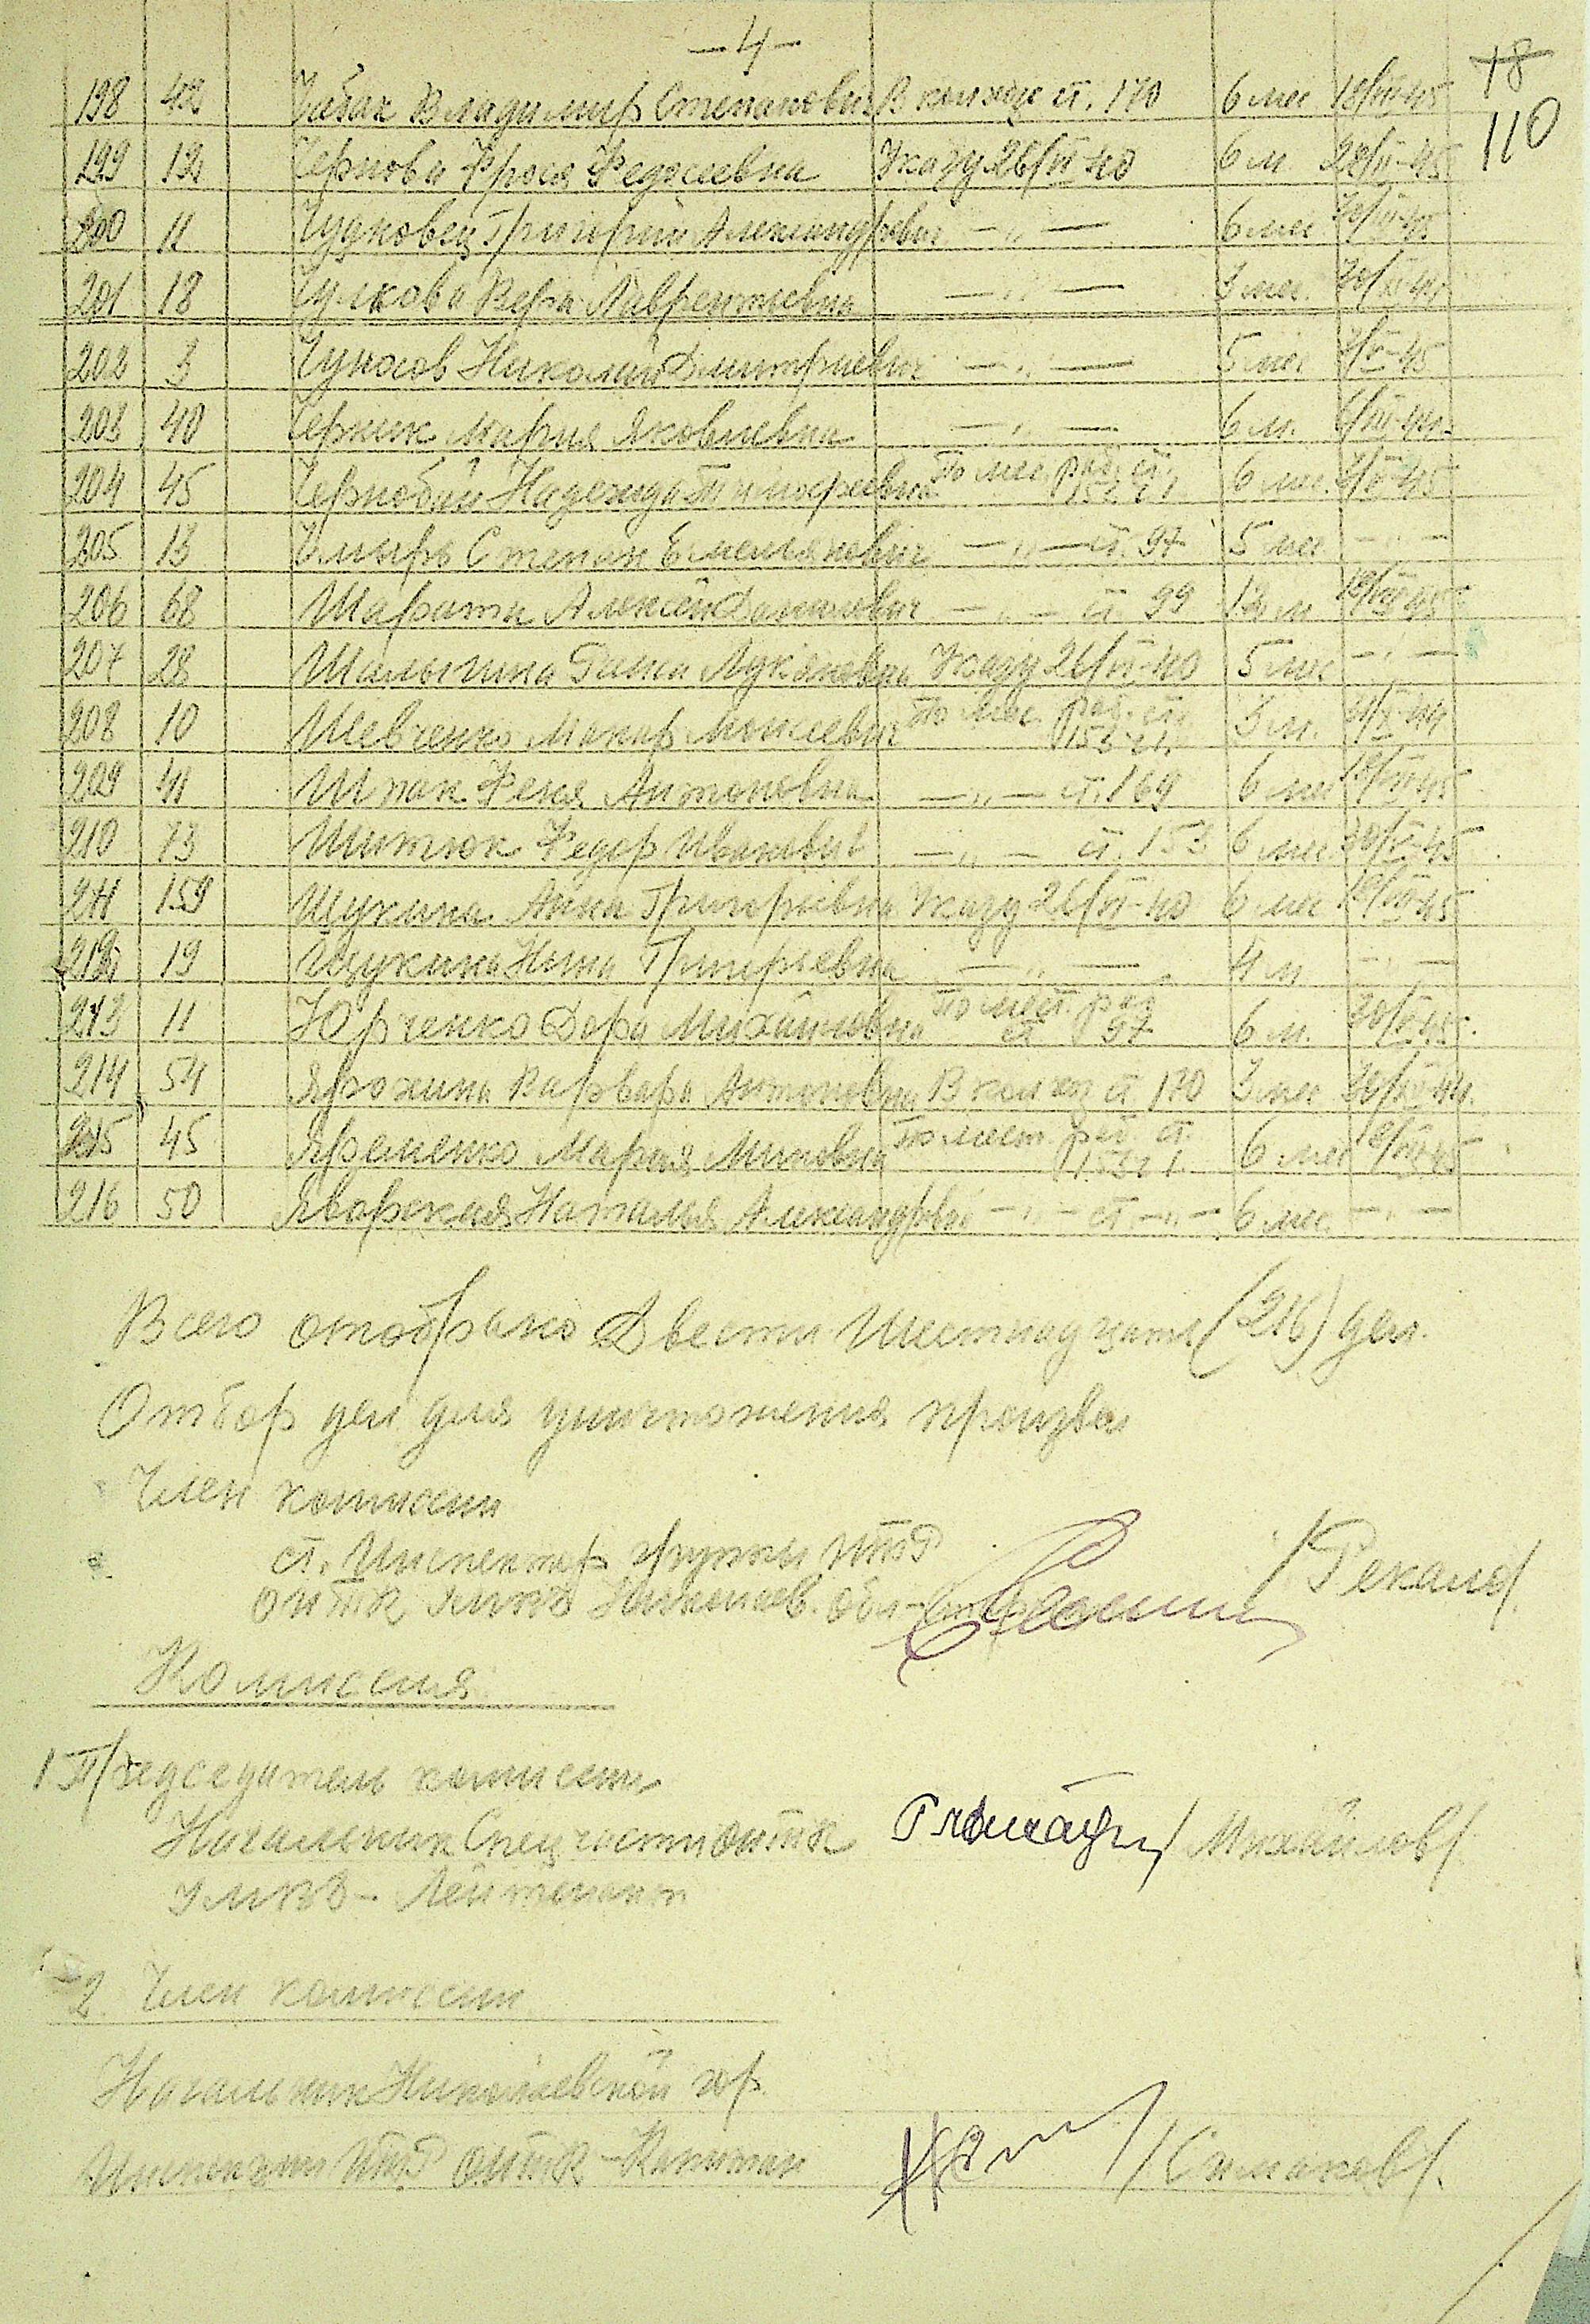 — 4 —
18
110
198 42 Чабан Владимир Степанович В колхозе ст. 170 6 мес 18/VII-45
199 12 Чернова Фрося Федосеевна Указу 26/VI-40 6 м 28/II-45
200 11 Чудновец Григорий Александрович —„— 6 мес
201 18 Чулкова Вера Лаврентиевна —„— 3 мес.
202 3 Николай Дмитриевич —„— 5 мес
203 40 Черник Мария Яковлевна —„— 6 м.
204 45 Чернобай Надежда Тимофеевна По мес. раб. ст. 153 ч 1 6 мес.
205 13 Чмырь Степан Емельянович —„— ст. 97 5 мес —„—
206 68 Алексей —„— ст. 99 12 м
207 28 Шалыгина Лукьяновна Указу 26/VI-40 5 мес —„—
208 10 Шевченко Макар Моисеевич По мес. раб. ст. 153 ч 1. 3 м.
209 41 Шпак Феня Антоновна —„— ст. 169 6 мес
210 73 Шитюк Федор Иванович —„— ст. 153 6 мес
211 159 Щукина Анна Григорьевна Указу 26/VI-40 6 мес
212 19 Щукина Нина Григорьевна —„— 4 м —„—
213 11 Юрченко Дора Михайловна по мест. раб ст 97 6 м.
214 54 Ярохина Варвара Антоновна В колхоз ст. 170 3 мес
215 45 Яременко Мария Миновна по мест. раб ст. 153 ч 1. 6 мес
216 50 Яворская Наталья Александровн —„— ст —„— 6 мес. —„—
Всего отобрано Двести Шестнадцать (216) дел.
Отбор дел для уничтожения произвел
Член комиссии
ст. Инспектор группы ИТР
ОИТК УМВД Николаев. обл-
/Рекало/
Комиссия
1. Председатель комиссии
Начальник Спецчасти ОИТК /Михайлов/
УМВД – Лейтенант
2. Член комиссии
Начальник Николаевской гор
Инспекции ИТР ОИТК – Капитан /Симаков/.